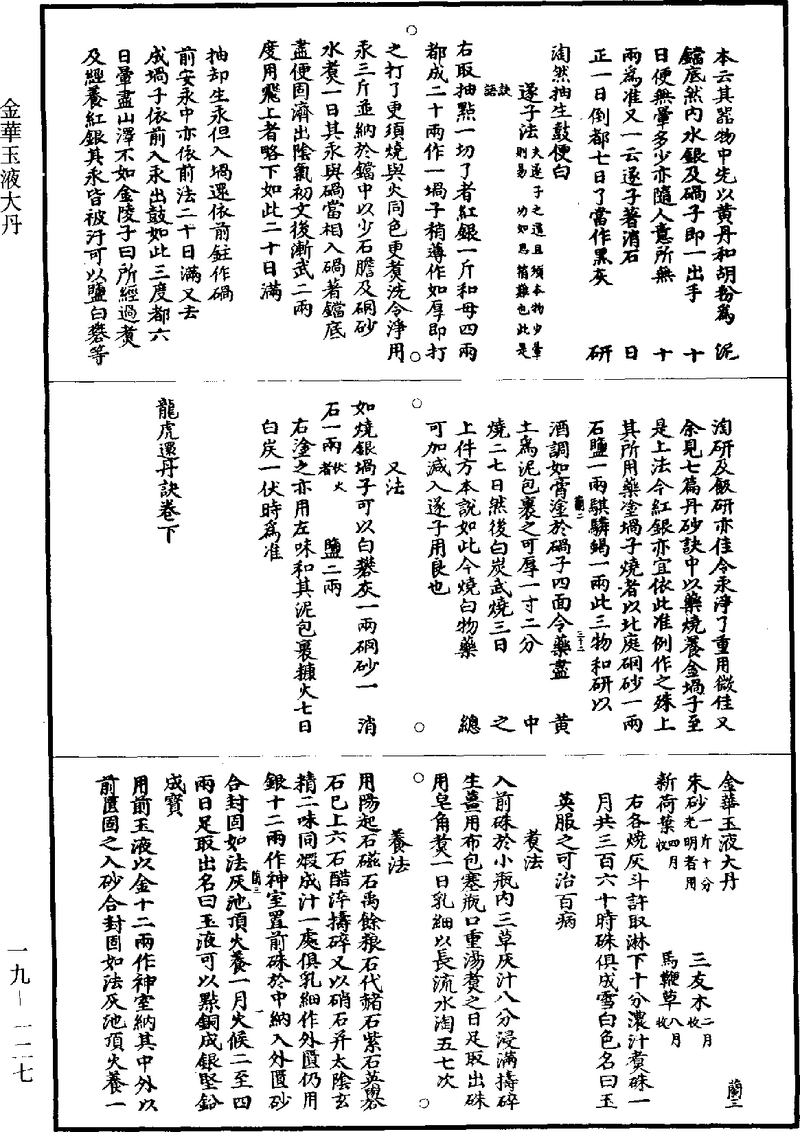 金華玉液大丹
本云其器物中先以黃丹和胡粉為泥
鐺底然內水銀及鍋子即一出手十
日便無暈多少亦隨人意所無十
兩為准又一云遂子著消石日
正一日倒都七日了當作黑灰研
淘然抽生鼓便白
遂子法夫遂子之道且須本物少暈則易功如思猶難也此是
訣語
右取抽點一切了者紅銀一斤和母四兩
都成二十兩作一堝子稍薄作如厚即打
之打了更須燒與火同色更煑洗令淨用
汞三斤並納於鐺中以少石膽及硇砂
水煑一日其汞與鍋當相入鍋著鐺底
盡便固濟出陰氣初文後漸武二兩
度用飛上者略下如此二十日滿
抽却生汞但入堝還依前鉒作鍋
前安汞中亦依前法二十日滿又去
成堝子依前入汞出鼓如此三度都六
日暈盡山澤不如金陵子曰所經過煑
及經養紅銀其汞皆被汙可以鹽白礬等
淘研及飯研亦佳令汞淨了重用微佳又
余見七篇丹砂訣中以藥燒養金堝子至
是上法今紅銀亦宜依此准例作之殊上
其所用藥塗堝子燒者以北庭硇砂一兩
石鹽一兩騏驎鍚一兩此三物和研以
酒調如膏塗於鍋子四面令藥盡黃
土為泥包裹之可厚一寸二分中
燒二七日然後白炭武燒三日之
上件方本說如此今燒白物藥總
可加減入遂子用良也
又法
如燒銀堝子可以白礬灰一兩硇砂一消
石一兩伏火者鹽二兩
右塗之亦用左味和其泥包裹糠火七日
白炭一伏時為准
龍虎還丹訣卷下
金華玉液大丹
蘭三
朱砂一斤十分光明者用三友木二月收
新荷葉四月收馬鞭草八月收
右各燒灰斗許取淋下十分濃汁煑硃一
月共三百六十時硃俱成雪白色名曰玉
英服之可治百病
煑法
入前硃於小瓶內三草灰汁八分浸滿擣碎
生薑用布包塞瓶口重湯煑之日足取出硃
用皂角煑一日乳細以長流水淘五七次
養法
用陽起石磁石禹餘粮石代赭石紫石英礜
石已上六石醋淬擣碎又以硝石并太陰玄
精二味同煅成汁一處俱乳細作外匱仍用
銀十二兩作神室置前硃於中納入外匱砂
合封固如法灰池頂火養一月火候二至四
兩日足取出名曰玉液可以點銅成銀堅鉛
成寶
用前玉液以金十二兩作神室納其中外以
前匱固之入砂合封固如法灰池頂火養一
一九－一二七